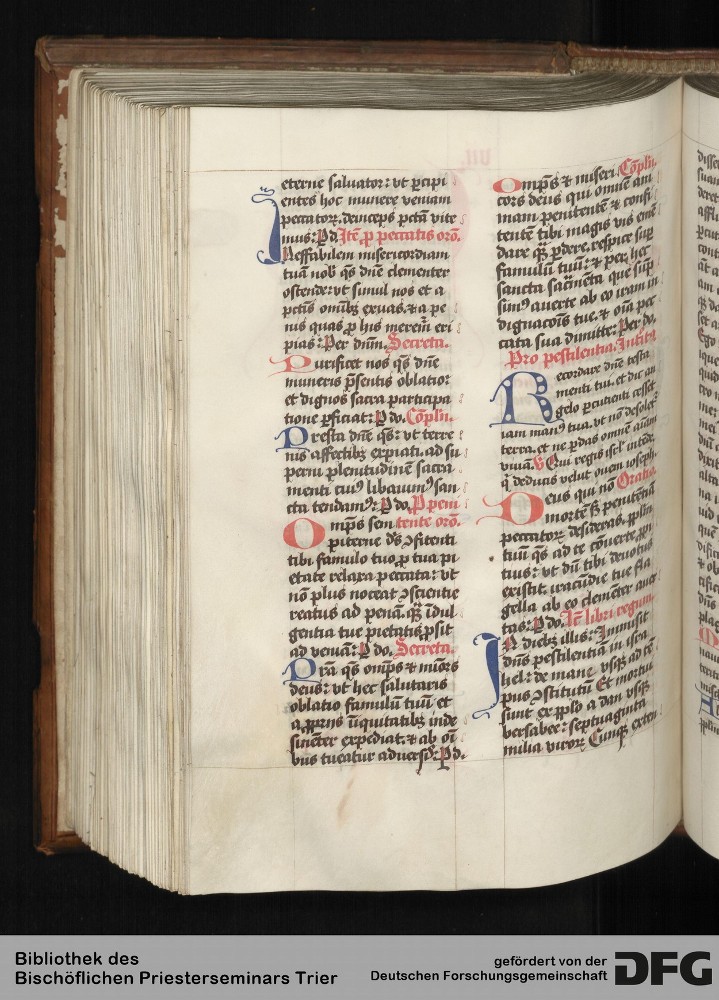 eterne saluator: vt ꝑcipi
entes hoc munere veniam
peccatoꝝ. deinceps pctā vite
mus: Ꝑ d. Itē ꝓ peccatis orō.
Ineffabilem misericordiam
tuā nob qs dnē clementer
ostende: vt simul nos et a
pctis omībꝫ exuas. ⁊ a pe
nis quas ꝓ his meremr̄ eri
pias: Per dnm̄. Secreta.
Purificet nos qs dnē
muneris p̄sentis oblatio:
et dignos sacra participa
tione ꝑficiat: Ꝑ do. Cōpln̄.
Presta dnē qs: vt terre
nis affectibꝫ expiati. ad su
perni plenitudinē sacra
menti cuiꝰ libauimꝰ san
cta tendamꝰ: Ꝑ do. Ꝓ peni
Omps sem tente orō.
piterne ds ɔfitenti
tibi famulo tuo ꝓ tua pi
etate relaxa peccata: vt
nō plus noceat ɔscientie
reatus ad penā. qꝫ īdul
gentia tue pietatis ꝓsit
ad veniā: Ꝑ do. Secreta.
Prā qs omps ⁊ miōrs
deus: vt hec salutaris
oblatio famulū tuū et
a ꝓpriis iīquitatibꝫ inde
sinēter expediat. ⁊ ab oī
bus tueatur aduersꝭ: Ꝑ d.
Omps ⁊ miseri Cōpln̄.
cors deus qui omnē ani
mam penitentē ⁊ confi
tentē tibi magis vis emē
dare qꝫ ꝑdere. respice suꝑ
famulū tuū: ⁊ per hec
sancta sacm̄enta que sūp
simꝰ auerte ab eo iram in
dignacōis tue. ⁊ oīa pec
cata sua dimitte: Per do.
Pro pestilentia. Intita
Recordare dnē testa
menti tui. et dic an
gelo ꝑcutienti cesset
iam manꝰ tua. vt nō desoletᷣ
terra. et ne ꝑdas omnē aīam
viuā. V̄ Qui regis isrl̄ intēde.
q̄ deducis velut ouem ioseph.
Deus qui nō Oratio.
mortē sꝫ penitētiā
peccatoꝝ desideras. pplm̄
tuū qs ad te ꝯuerte ꝓpi
tius: vt dū tibi deuotus
existit. iracūdie tue fla
gella ab eo clemēter amo
tas: Ꝑ do. Lc̄ libri regum.
In diebꝫ illis: Immisit
dns pestilentiā in isra
hel: de mane vsqꝫ ad tē
pus ɔstitutū Et mortui
sunt ex pplo a dan vsqꝫ
bersabee: septuaginta
milia viroꝝ Cumqꝫ exten
Bibliothek des
Bischöflichen Priesterseminars Trier
gefördert von der
Deutschen Forschungsgemeinschaft
DFG